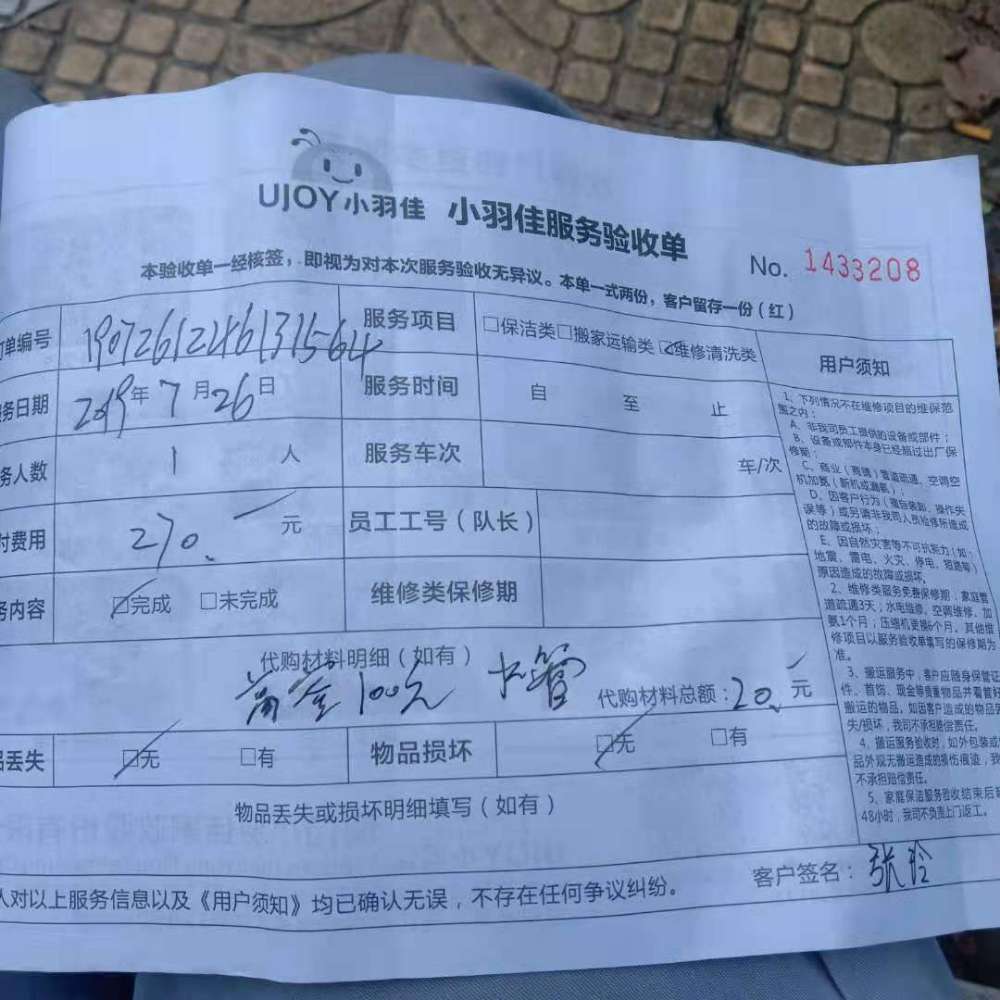 UJOY小羽佳 小羽佳服务验收单
No. 1433208
本验收单一经核签，即视为对本次服务验收无异议。本单一式两份，客户留存一份（红）
单编号 1907261246131564 服务项目 □保洁类□搬家运输类☑维修清洗类
务日期 2019年7月26日 服务时间 自 至 止
务人数 1 人 服务车次 年/次
付费用 270. 元 员工工号（队长）
务内容 ☑完成 □未完成 维修类保修期
代购材料明细（如有）
100元 代购材料总额：20. 元
品丢失 ☑无 □有 物品损坏 ☑无 □有
物品丢失或损坏明细填写（如有）
人对以上服务信息以及《用户须知》均已确认无误，不存在任何争议纠纷。
客户签名：张玲
用户须知
1、下列情况不在维修项目的维保范
围之内：
A、非我司员工提供的设备或部件；
B、设备或部件本身已经超过出厂保
修期；
C、商业（商铺）管道疏通、空调空
机加氨（新机或漏氨）；
D、因客户行为（擅自装卸、操作失
误等）或另请非我司人员检修所造成
的故障或损坏；
E、因自然灾害等不可抗力（如：
地震、雷电、火灾、停电、短路等）
原因造成的故障或损坏。
2、维修类服务免费保修期，家庭管
道疏通3天；水电维修、空调维修、加
氨1个月；压缩机更换6个月。其他维
修项目以服务验收单填写的保修期为
准。
3、搬运服务中，客户应随身保管证
件、首饰、现金等贵重物品并看管待
搬运的物品，如因客户造成的物品丢
失/损坏，我司不承担赔偿责任。
4、搬运服务验收时，如外包装或
品外观无搬运造成的损伤痕迹，我
不承担赔偿责任。
5、家庭保洁服务验收结束后
48小时，我司不负责上门返工。